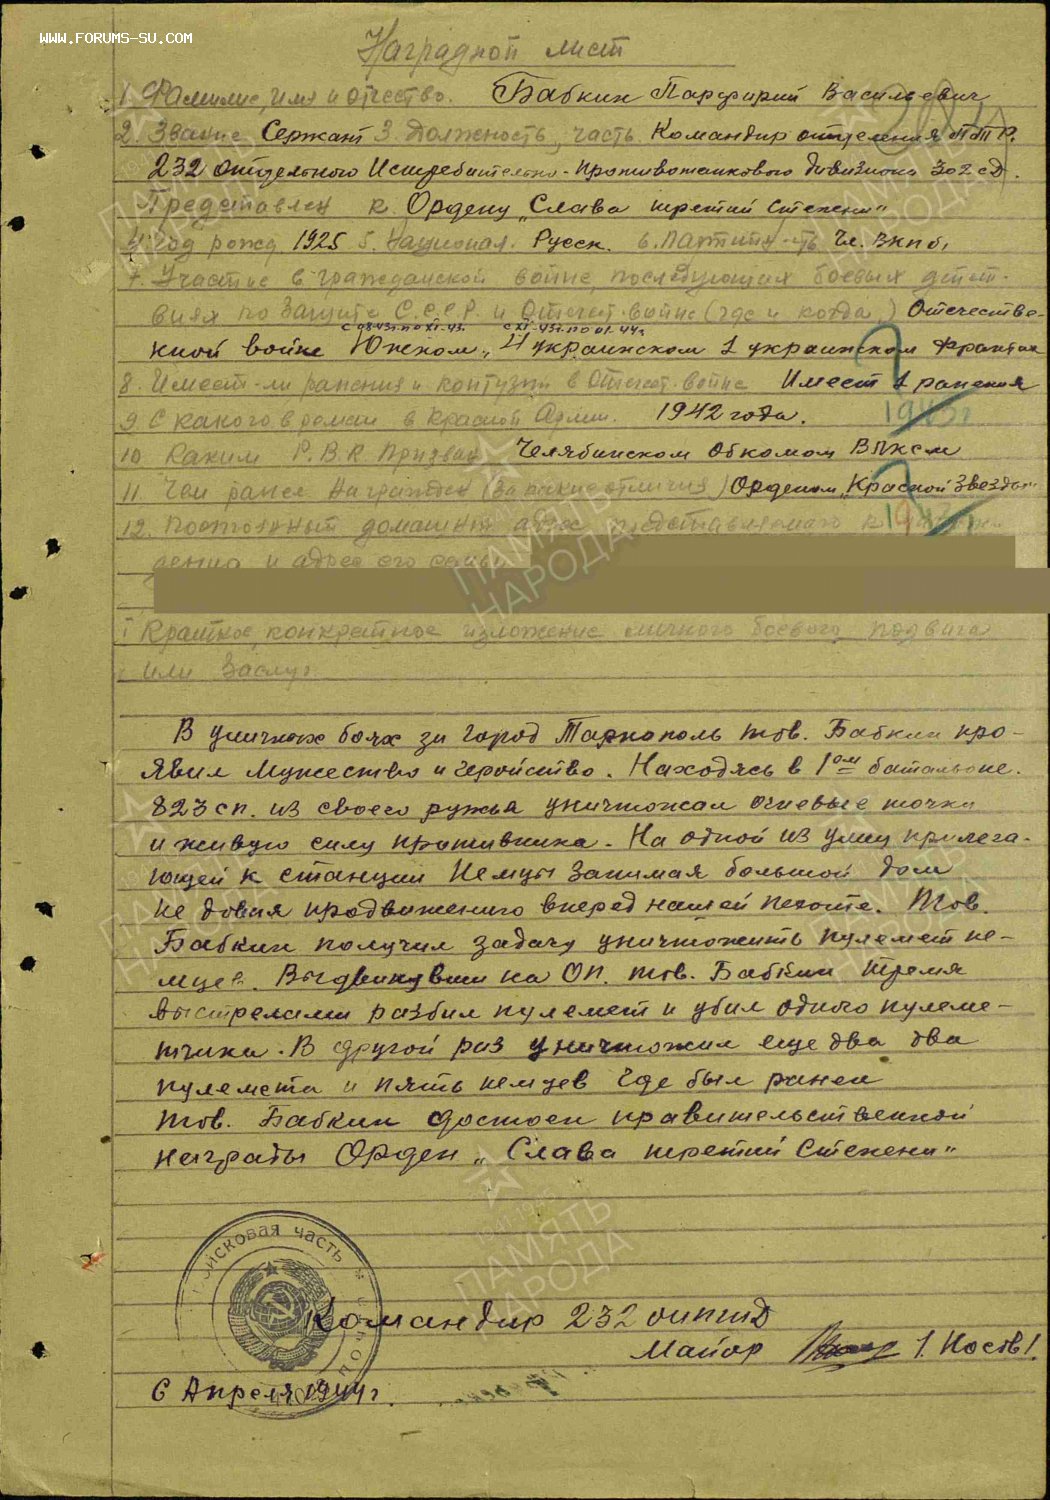 WWW.FORUMS-SU.COM
Наградной лист
1. Фамилие, имя и отчество. Бабкин Парфирий Васильевич
2. Звание Сержант 3. Должность, часть Командир отделения ПТР.
232 отдельного Истребительно-противотанкового дивизиона 302 сД.
Представлен к Ордену „Слава третий степени"
4. год рожд 1925 5. Национал. Русск. 6. партийн-ть Чл. ВКПб,
7. Участие в гражданской войне, последующих боевых дейст-
виях по защите С.С.С.Р. и Отечест. войне (где и когда) Отечестве-
с 08.43г. по XI-43. с XI-43г. по 01.44г.
нной войне Южном, 4 украинском 1 украинском фронтах
8. Имеет-ли ранения и контузии в Отечест. войне Имеет 1 ранения
1943г
9. С какого времени в Красной Армии. 1942 года.
10 Каким Р.В.К. Призван Челябинском обкомом ВЛКСМ
11. Чем ранее награжден (за какие отличия) Орденом „Красной Звезды"
12. Постоянный домашний адрес представляемого к
и адрес его семьи
I Краткое, конкретное изложение личного боевого подвига
или заслуг
В уличных боях за город Тарнополь тов. Бабкин про-
явил мужество и геройство. Находясь в 1ом батальоне.
823 сп. из своего ружья уничтожал огневые точки
и живую силу противника. На одной из улиц прилега-
ющей к станции Немцы занимая большой дом
не довая продвижению вперед нашей пехоте. Тов.
Бабкин получил задачу уничтожить пулемет не-
мцев. Выдвинувши на ОП. тов. Бабкин тремя
выстрелами разбил пулемет и убил одного пулеме-
тчика. В другой раз уничтожил еще два два
пулемета и пять немцев где был ранен
тов. Бабкин достоен правительственной
награды Орден „Слава третий степени"
войсковая часть
Командир 232 оиптд
Майор
6 Апреля 1944г.
ПАМЯТЬ
НАРОДА
ПАМЯТЬ
НАРОДА
ПАМЯТЬ
НАРОДА
ПАМЯТЬ
НАРОДА